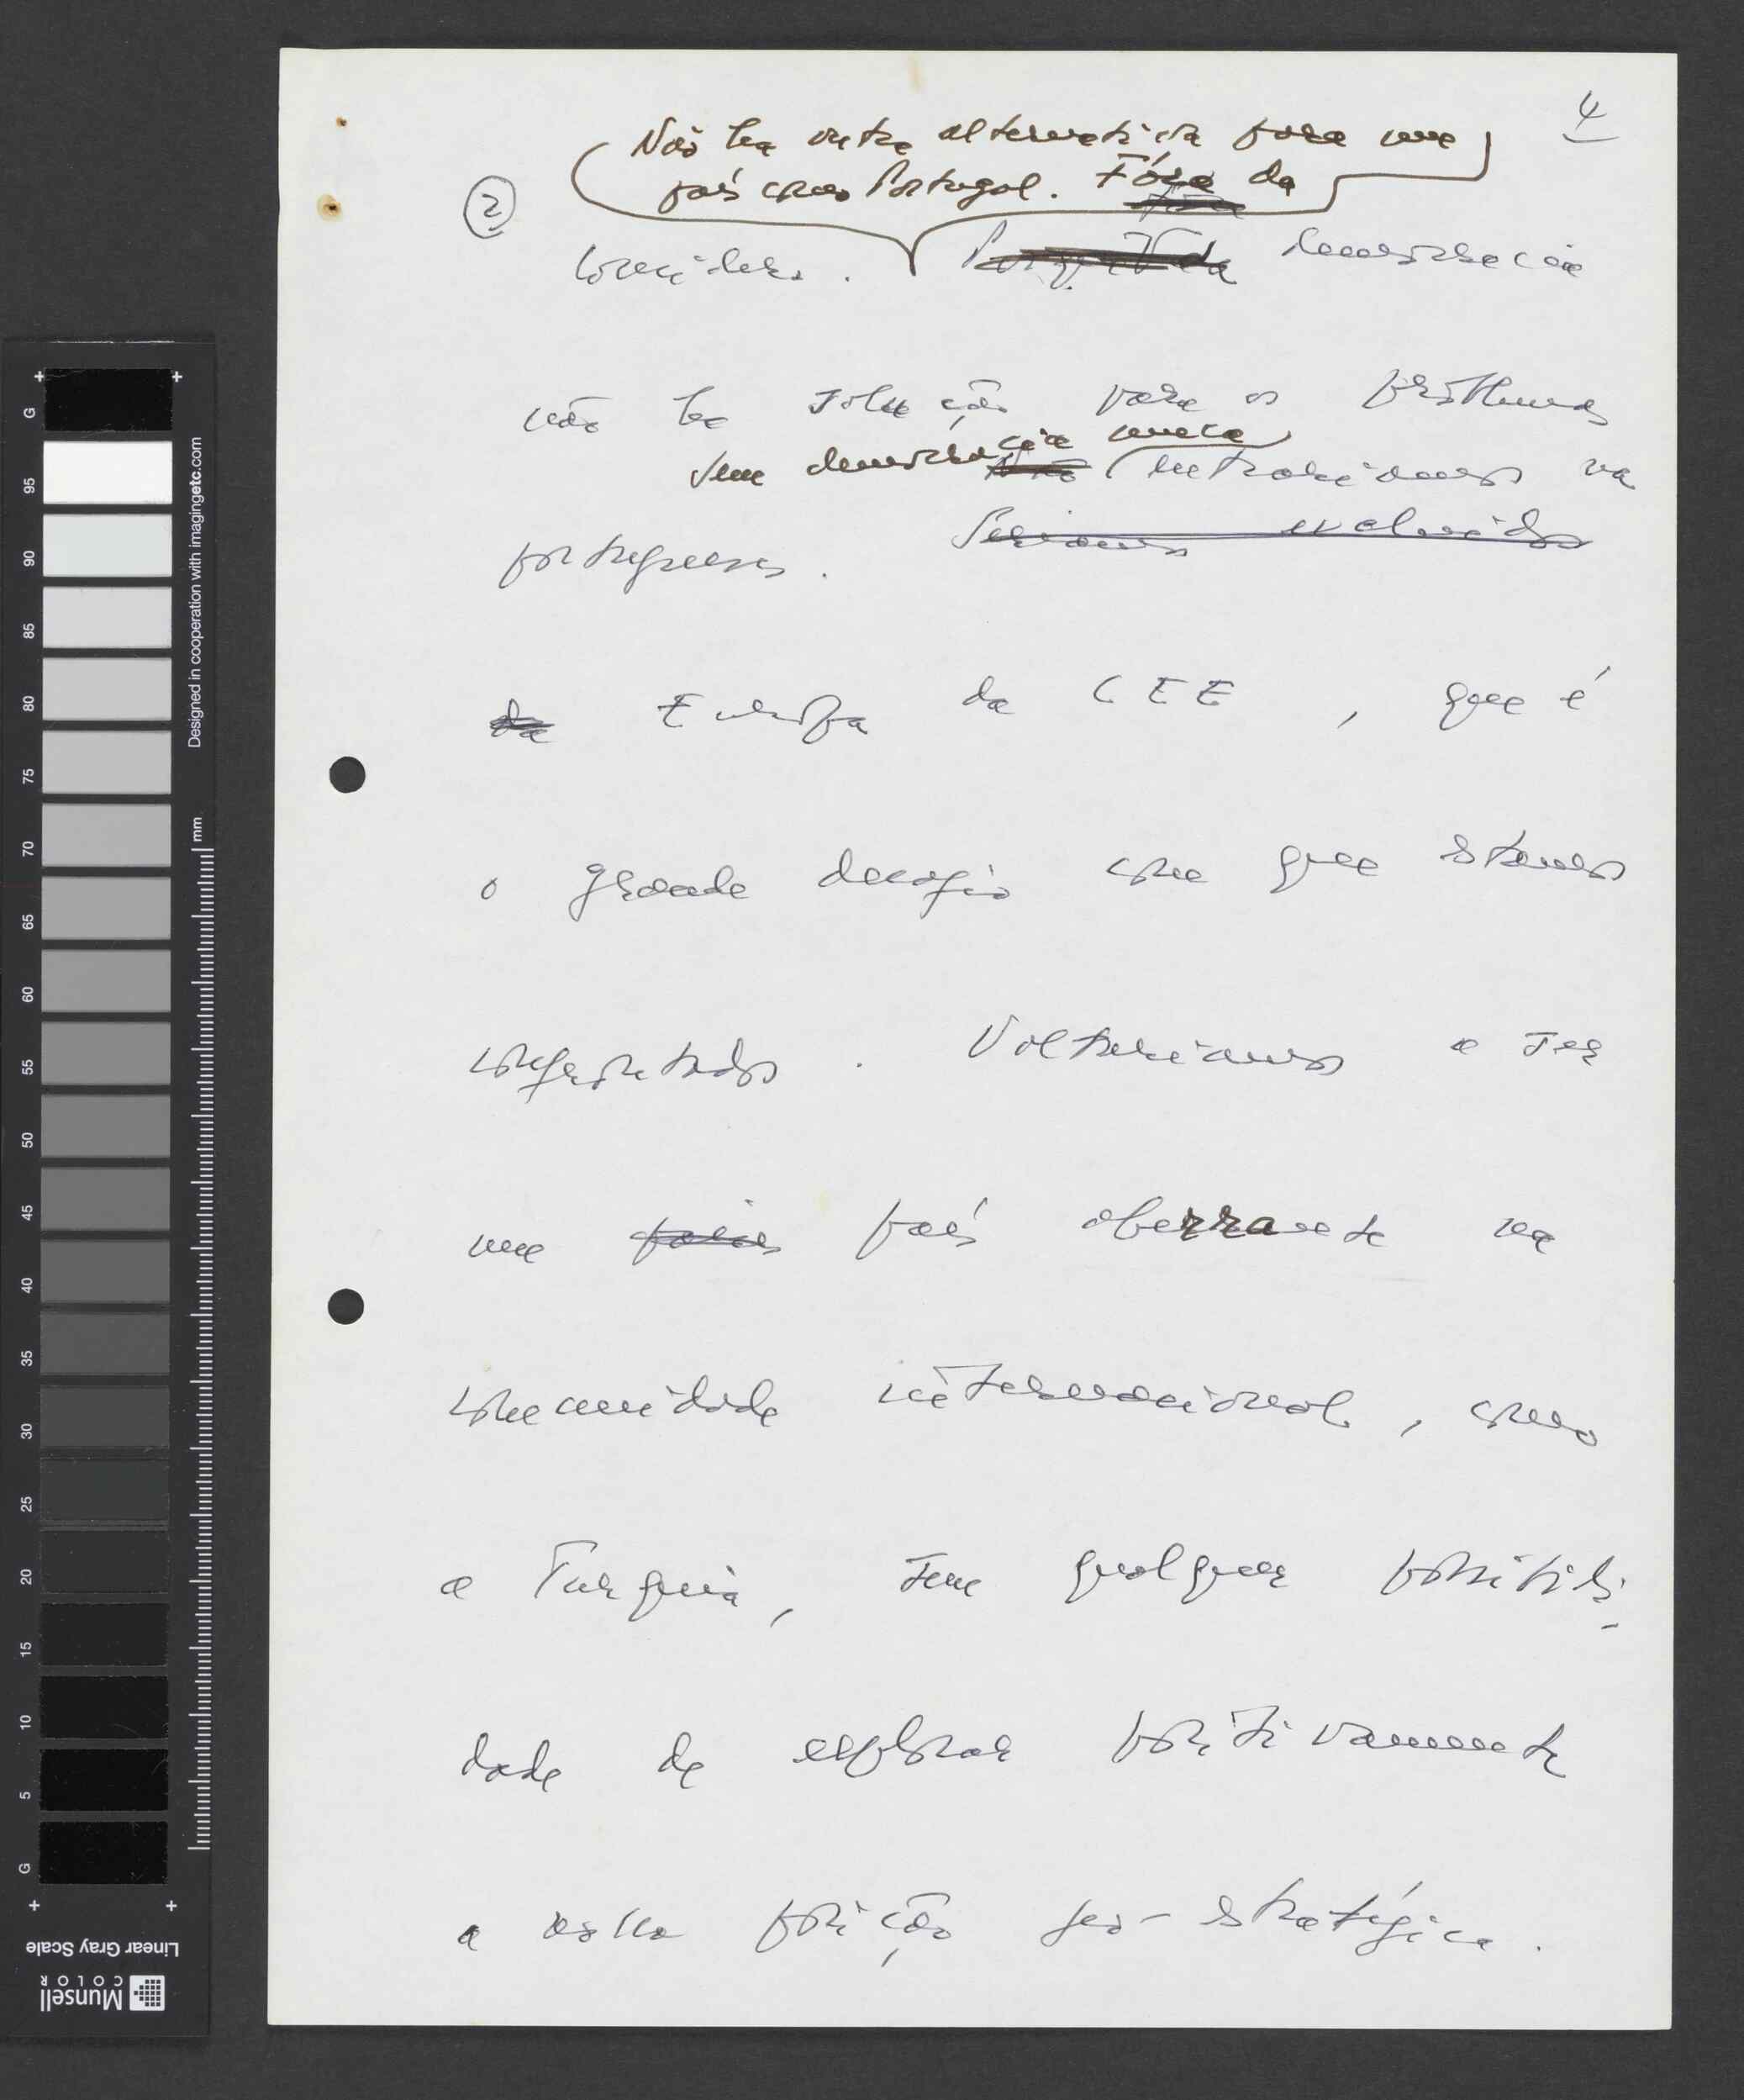 4
Não há outra alternativa para um
país como Portugal. Fóra da
②
Porque da democracia
não há solução para os problemas
Sem democracia nunca
Não entrariamos na
portugueses. Seriamos excluídos
da Europa da CEE, que é
o grande desafio com que estamos
confrontados. Voltariamos a ser
um país aberrante na
comunidade internacional, como
a Turquia, sem qualquer possibili-
dade de explorar positivamente
a nossa posição geo-estratégica.
G
95
90
85
80
75
70
65
60
55
50
45
40
35
30
25
20
15
10
5
G
mm
Designed in cooperation with imagingetc.com
Linear Gray Scale
Munsell
COLOR